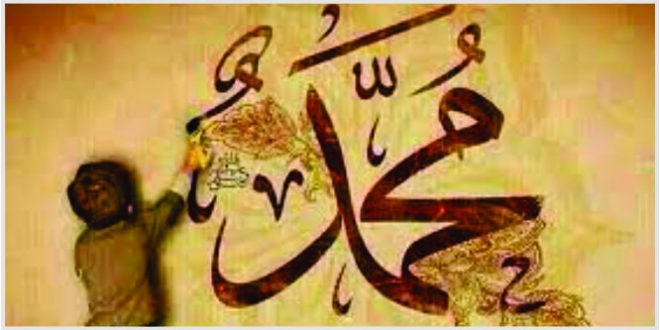 مُحمَّدٌ